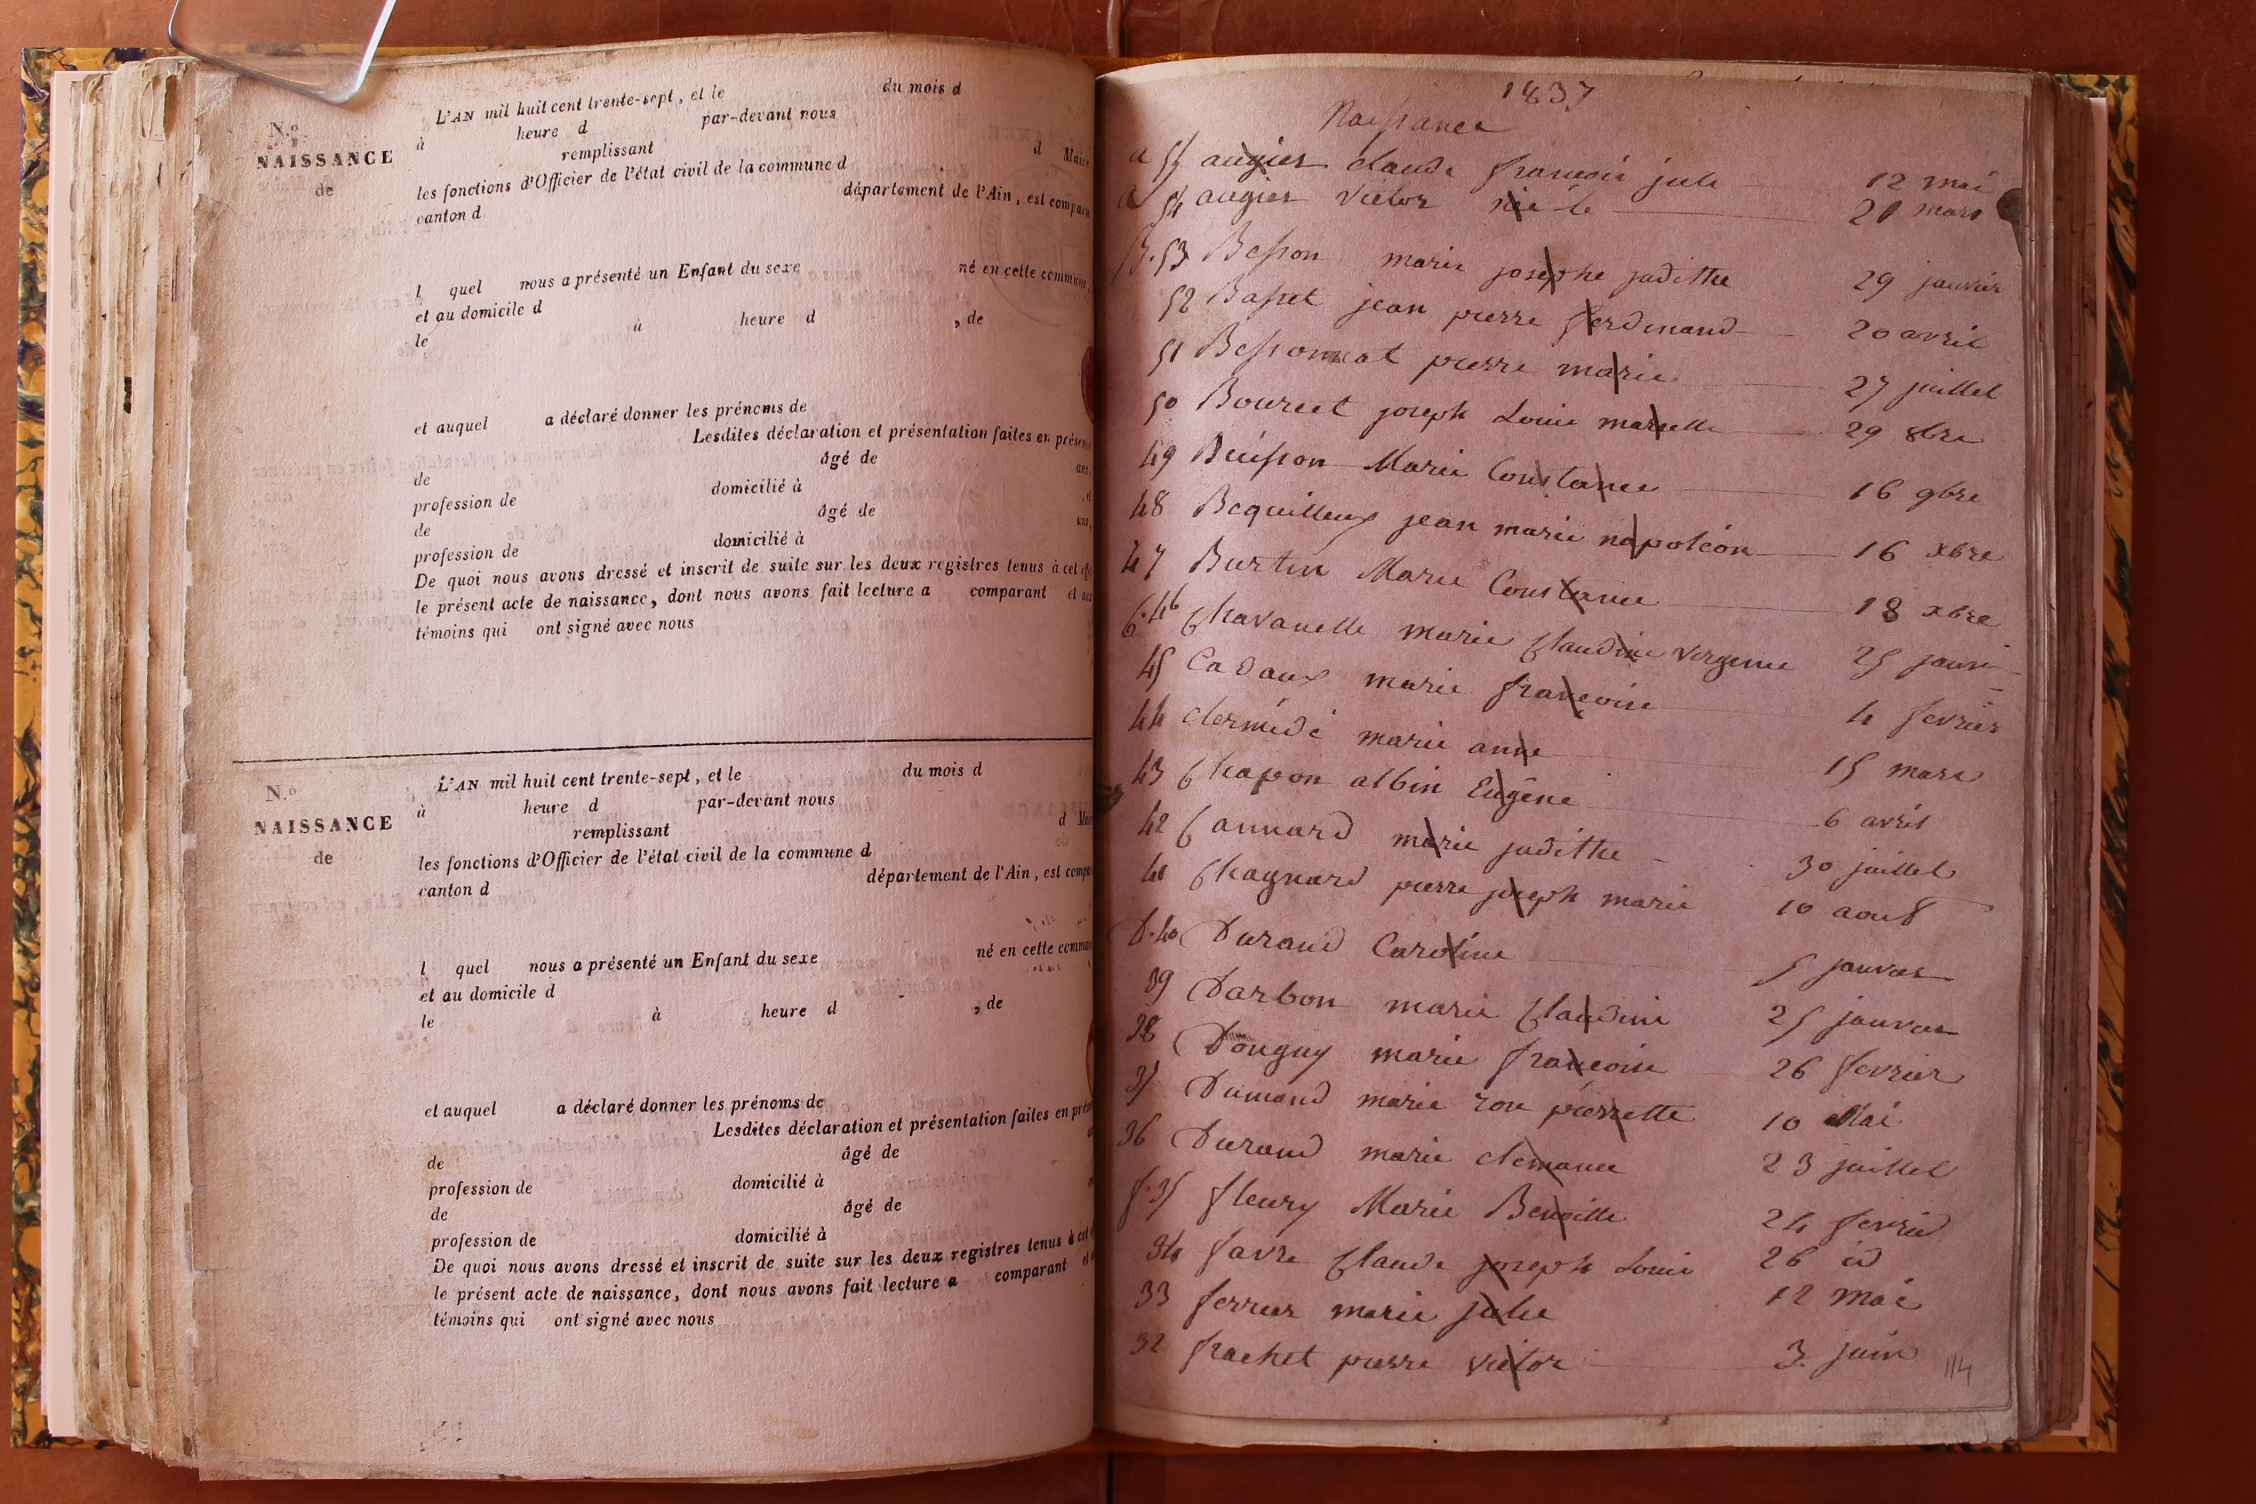 N.o
NAISSANCE
de
L'AN mil huit cent trente-sept, et le du mois d
à heure d par-devant nous
remplissant d Maire
les fonctions d'Officier de l'état civil de la commune d
canton d département de l'Ain, est compar
l quel nous a présenté un Enfant du sexe né en cette commune,
et au domicile d
le à heure d , de
et auquel a déclaré donner les prénoms de
Lesdites déclaration et présentation faites en présen
de âgé de ans,
profession de domicilié à , et
de âgé de ans,
profession de domicilié à
De quoi nous avons dressé et inscrit de suite sur les deux registres tenus à cet effe
le présent acte de naissance, dont nous avons fait lecture a comparant et aux
témoins qui ont signé avec nous
N.o
NAISSANCE
de
L'AN mil huit cent trente-sept, et le du mois d
à heure d par-devant nous
remplissant d Mai
les fonctions d'Officier de l'état civil de la commune d
canton d département de l'Ain, est compa
l quel nous a présenté un Enfant du sexe né en cette commun
et au domicile d
le à heure d , de
et auquel a déclaré donner les prénoms de
Lesdites déclaration et présentation faites en prés
de âgé de
profession de domicilié à
de âgé de
profession de domicilié à
De quoi nous avons dressé et inscrit de suite sur les deux registres tenus à cet
le présent acte de naissance, dont nous avons fait lecture a comparant et
témoins qui ont signé avec nous
1837
Naissance
a 55 augier claude françois jule 12 mai
a 54 augier victor né le 21 mars
B. 53 Besson marie josephe judithe 29 janvier
52 Basset jean pierre ferdinand 20 avril
51 Bessonnat pierre marie 27 juillet
50 Bourcet joseph Louis marcelle 29 8bre
49 Buisson Marie Constance 16 9bre
48 Bequilleux jean marie napoléon 16 xbre
47 Burtin Marie Constance 18 xbre
C. 46 Chavanelle marie Claudine Vergenie 25 janvi
45 Cadaux marie françoise 4 fevrier
44 clermidé marie anne 15 mars
43 Chapon albin Eugène 6 avril
42 Cannard marie judithe 30 juillet
41 Chagnard pierre joseph marie 10 aout
D. 40 Durand Caroline 5 janvier
39 Darbon marie Claudine 25 janvier
38 Donguy marie françoise 26 fevrier
37 Dumand marie rose pierrette 10 Mai
36 Durand marie clemance 23 juillet
f. 35 fleury Marie Benoitte 24 fevrier
34 favre Claude joseph Louis 26 id
33 ferrier marie julie 12 mai
32 frachet pierre victor 3. juin
114